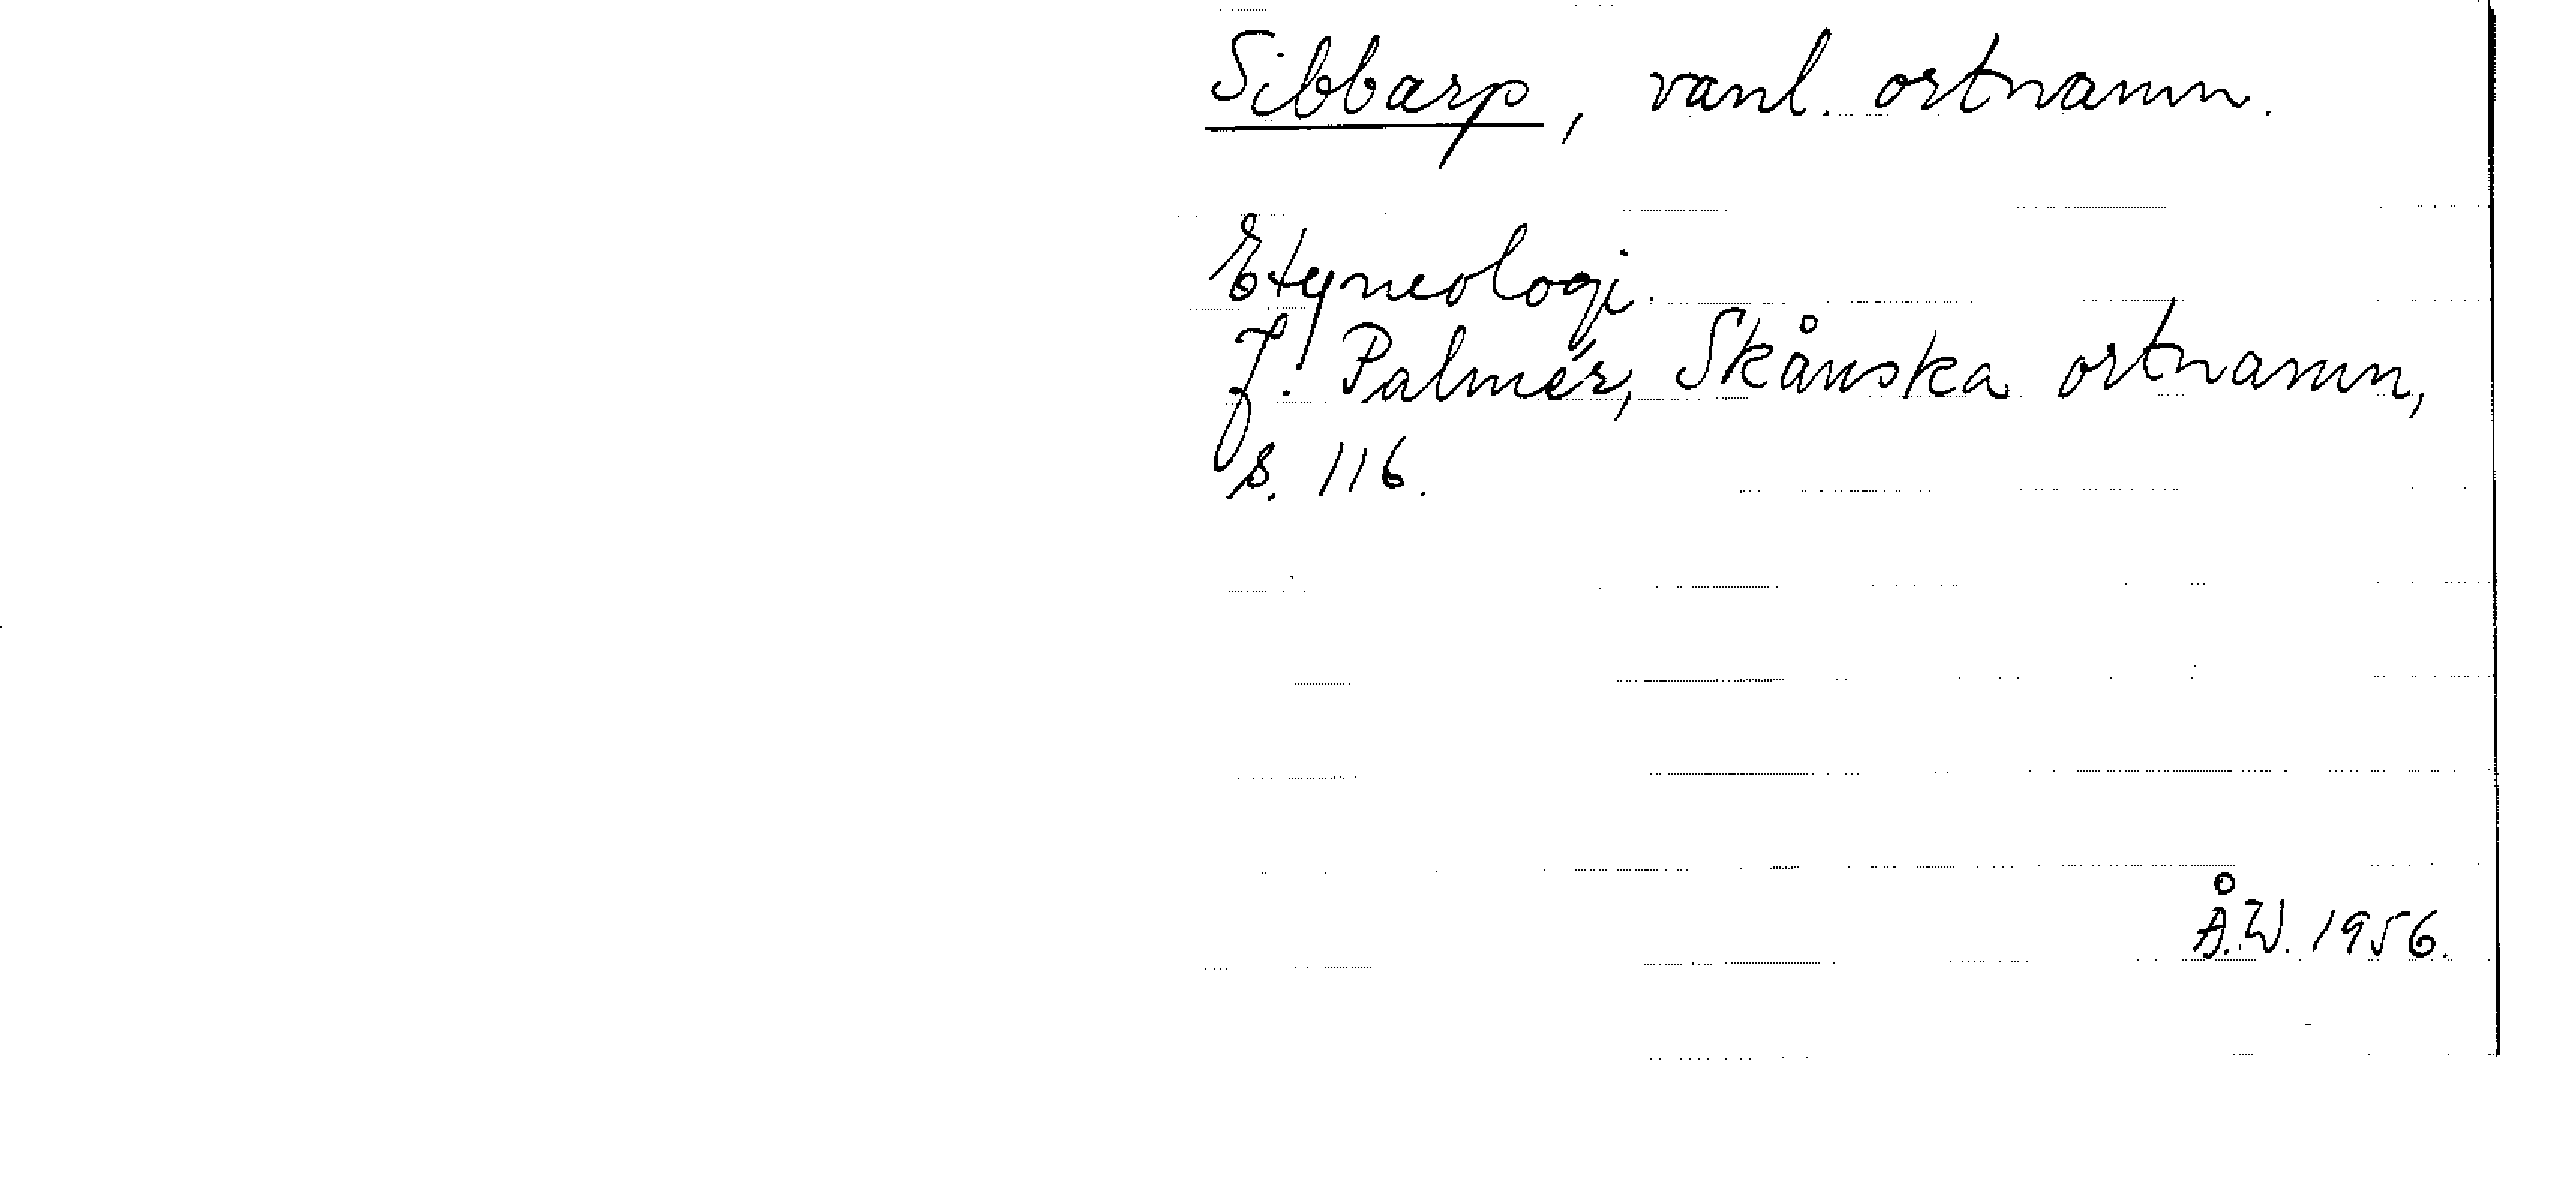 Sibbarp, vanl. ortnamn.
Etymologi.
J. Palmér, Skånska ortnamn,
s. 116.
Å.W. 1956.